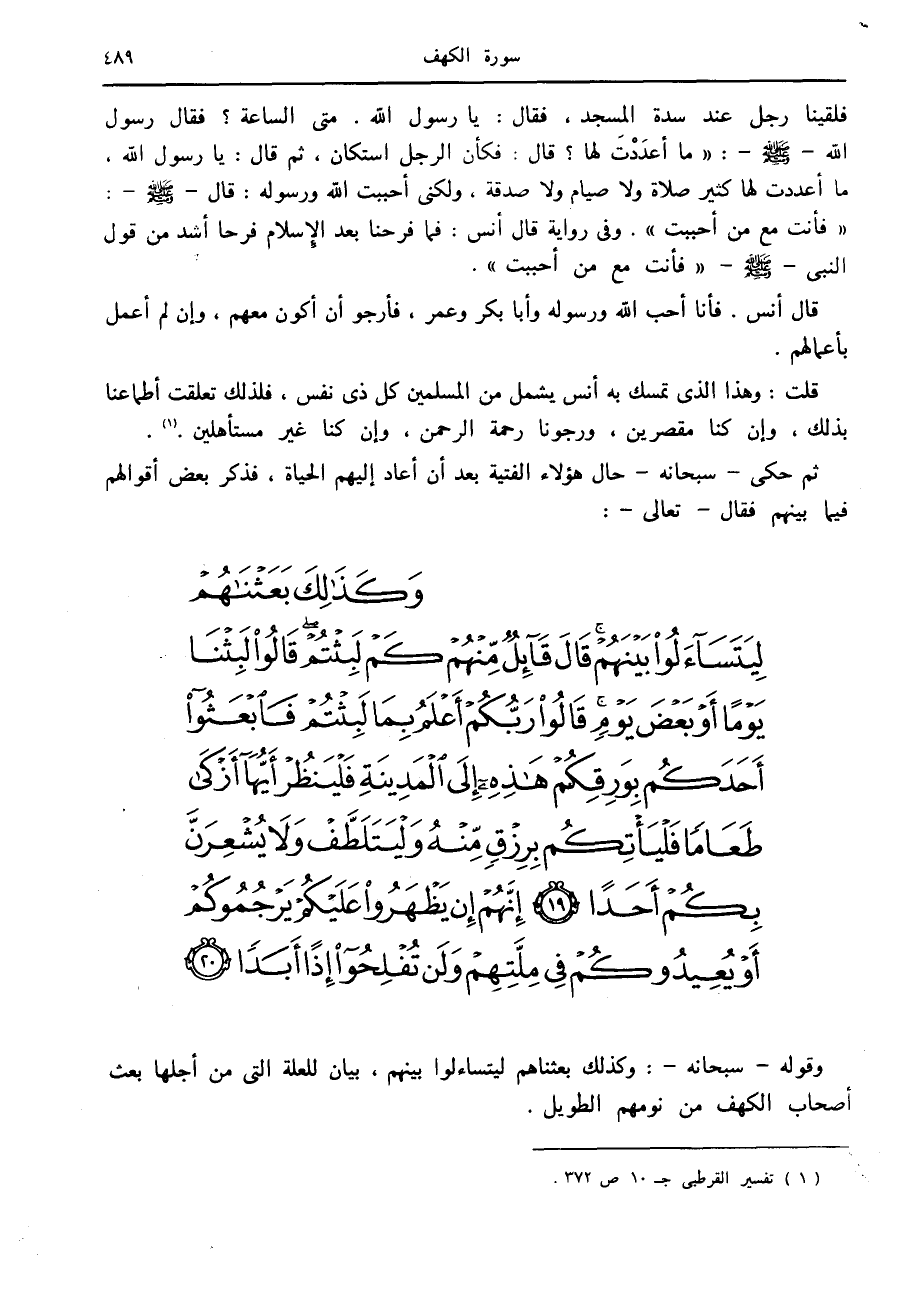 سورة الكهف ٤٨٩
فلقينا رجل عند سدة المسجد ، فقال : يا رسول الله . متى الساعة ؟ فقال رسول
الله – ﷺ – : « ما أعدَدْتَ لها ؟ قال : فكأن الرجل استكان ، ثم قال : يا رسول الله ،
ما أعددت لها كثير صلاة ولا صيام ولا صدقة ، ولكنى أحببت الله ورسوله : قال – ﷺ – :
« فأنت مع من أحببت » . وفى رواية قال أنس : فما فرحنا بعد الإسلام فرحا أشد من قول
النبى – ﷺ – « فأنت مع من أحببت » .
قال أنس . فأنا أحب الله ورسوله وأبا بكر وعمر ، فأرجو أن أكون معهم ، وإن لم أعمل
بأعمالهم .
قلت : وهذا الذى تمسك به أنس يشمل من المسلمين كل ذى نفس ، فلذلك تعلقت أطماعنا
بذلك ، وإن كنا مقصرين ، ورجونا رحمة الرحمن ، وإن كنا غير مستأهلين .(١) .
ثم حكى – سبحانه – حال هؤلاء الفتية بعد أن أعاد إليهم الحياة ، فذكر بعض أقوالهم
فيما بينهم فقال – تعالى – :
وَكَذَٰلِكَ بَعَثْنَٰهُمْ
لِيَتَسَآءَلُوا۟ بَيْنَهُمْ ۚ قَالَ قَآئِلٌ مِّنْهُمْ كَمْ لَبِثْتُمْ ۖ قَالُوا۟ لَبِثْنَا
يَوْمًا أَوْ بَعْضَ يَوْمٍ ۚ قَالُوا۟ رَبُّكُمْ أَعْلَمُ بِمَا لَبِثْتُمْ فَٱبْعَثُوٓا۟
أَحَدَكُم بِوَرِقِكُمْ هَٰذِهِۦٓ إِلَى ٱلْمَدِينَةِ فَلْيَنظُرْ أَيُّهَآ أَزْكَىٰ
طَعَامًا فَلْيَأْتِكُم بِرِزْقٍ مِّنْهُ وَلْيَتَلَطَّفْ وَلَا يُشْعِرَنَّ
بِكُمْ أَحَدًا ١٩ إِنَّهُمْ إِن يَظْهَرُوا۟ عَلَيْكُمْ يَرْجُمُوكُمْ
أَوْ يُعِيدُوكُمْ فِى مِلَّتِهِمْ وَلَن تُفْلِحُوٓا۟ إِذًا أَبَدًا ٢٠
وقوله – سبحانه – : وكذلك بعثناهم ليتساءلوا بينهم ، بيان للعلة التى من أجلها بعث
أصحاب الكهف من نومهم الطويل .
( ١ ) تفسير القرطبى جـ ١٠ ص ٣٧٢ .